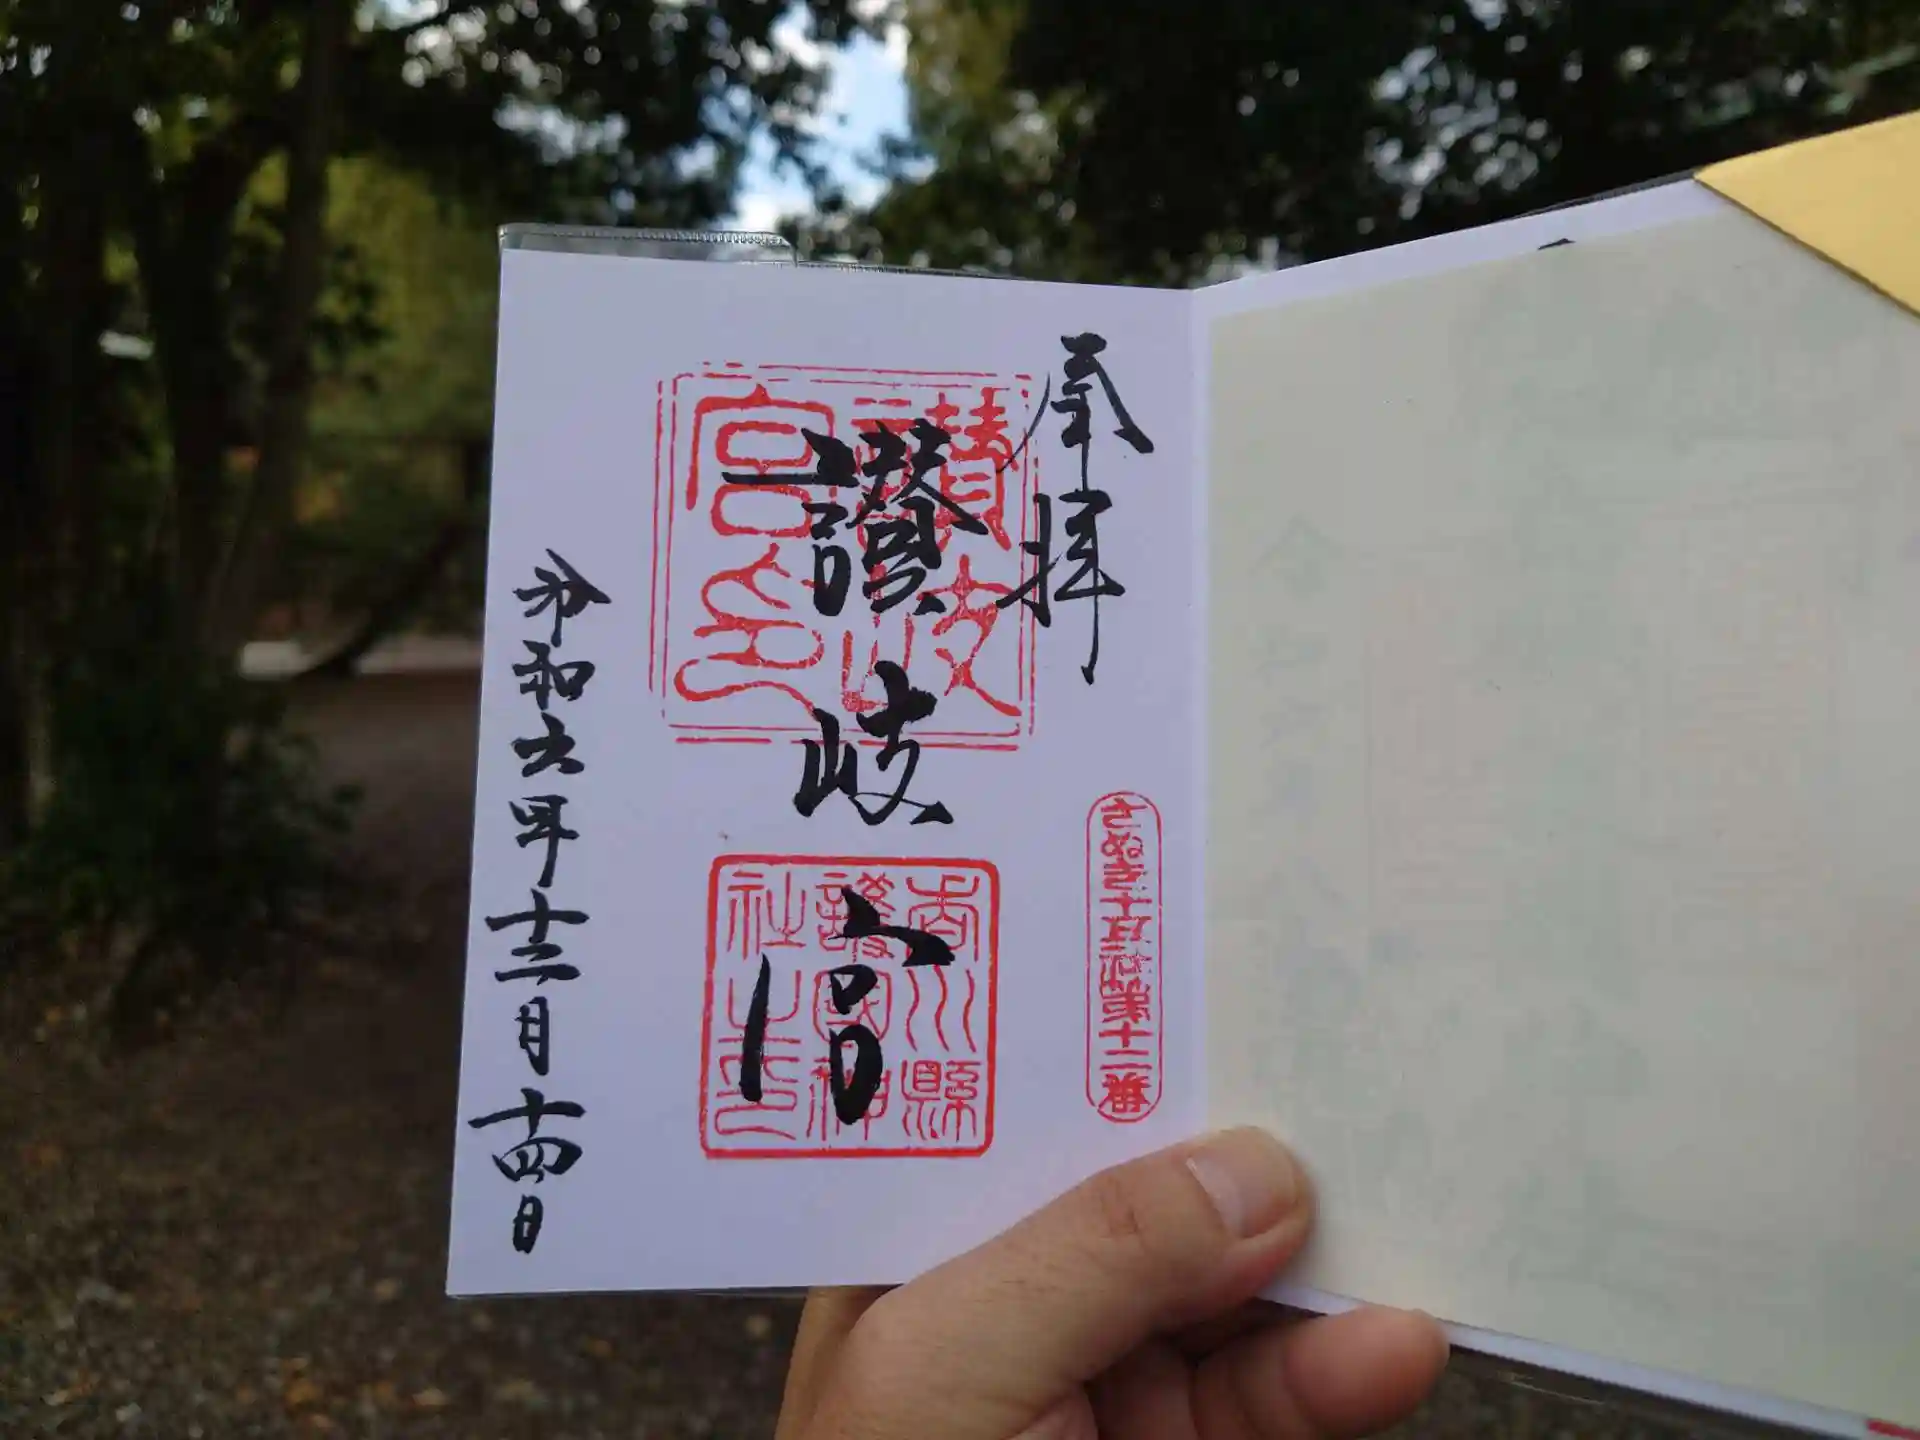 奉拝
さぬき十五社第十二番
讃岐宮
讃岐宮印
香川縣護國神社之印
令和六年十二月十四日